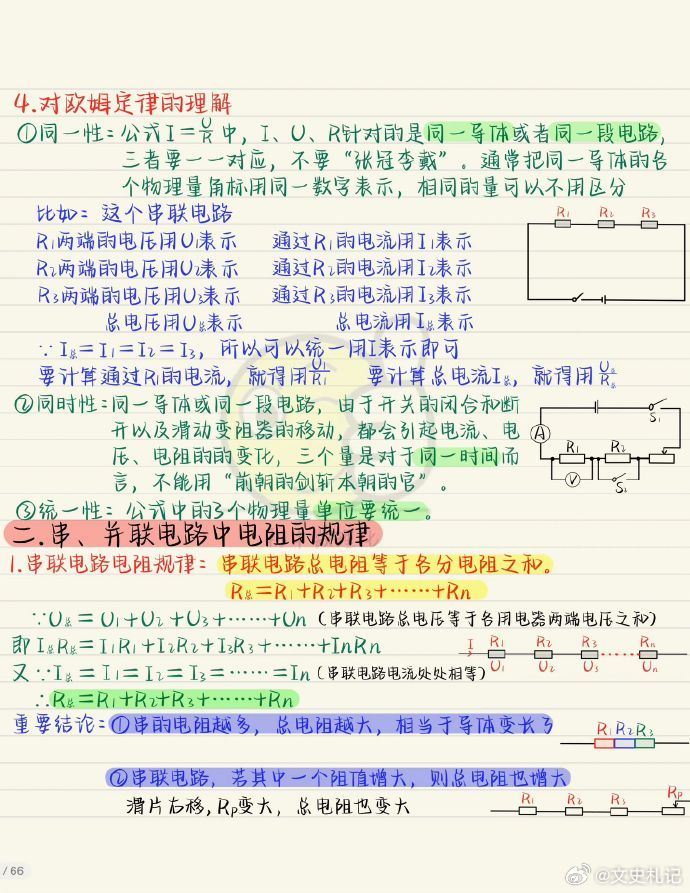 4.对欧姆定律的理解
①同一性:公式I=U/R中,I、U、R针对的是同一导体或者同一段电路,
三者要一一对应,不要“张冠李戴”。通常把同一导体的各
个物理量角标用同一数字表示,相同的量可以不用区分
比如:这个串联电路
R₁ R₂ R₃
R₁两端的电压用U₁表示 通过R₁的电流用I₁表示
R₂两端的电压用U₂表示 通过R₂的电流用I₂表示
R₃两端的电压用U₃表示 通过R₃的电流用I₃表示
总电压用U总表示 总电流用I总表示
∵I总=I₁=I₂=I₃,所以可以统一用I表示即可
要计算通过R₁的电流,就得用U₁/R₁ 要计算总电流I总,就得用U总/R总
②同时性:同一导体或同一段电路,由于开关的闭合和断
开以及滑动变阻器的移动,都会引起电流、电
压、电阻的的变化,三个量是对于同一时间而
言,不能用“前朝的剑斩本朝的官”。
S₁
A R₁ R₂
V S₂
③统一性:公式中的3个物理量单位要统一。
二.串、并联电路中电阻的规律
1.串联电路电阻规律:串联电路总电阻等于各分电阻之和。
R总=R₁+R₂+R₃+……+Rn
∵U总=U₁+U₂+U₃+……+Un(串联电路总电压等于各用电器两端电压之和)
即I总R总=I₁R₁+I₂R₂+I₃R₃+……+InRn
I R₁ R₂ R₃ …… Rn
U₁ U₂ U₃ Un
又∵I总=I₁=I₂=I₃=……=In(串联电路电流处处相等)
∴R总=R₁+R₂+R₃+……+Rn
重要结论:①串的电阻越多,总电阻越大,相当于导体变长了
R₁R₂R₃
②串联电路,若其中一个阻值增大,则总电阻也增大
滑片右移,Rp变大,总电阻也变大
R₁ R₂ R₃ Rp
/ 66
@文史札记